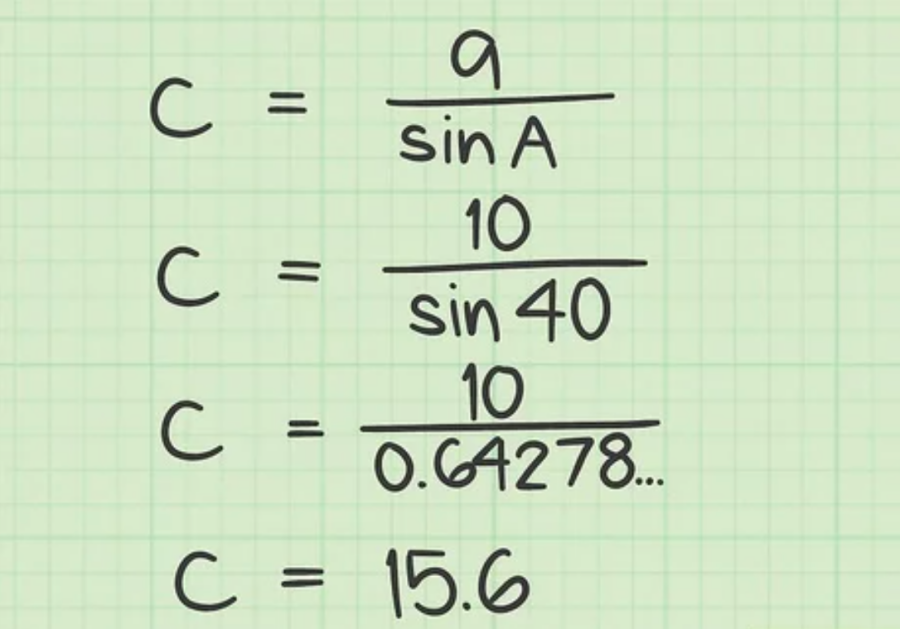 C = a / sin A
C = 10 / sin 40
C = 10 / 0.64278...
C = 15.6